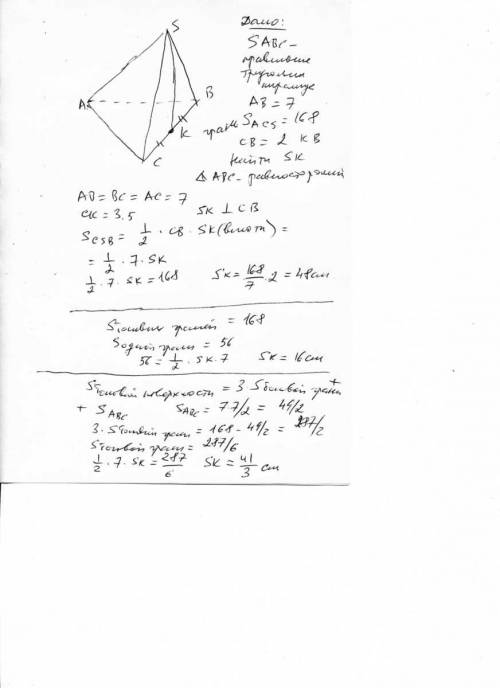 S
A
B
K
C
Дано:
SABC –
правильная
треуголн
пирамида
AB = 7
грани SACS = 168
CB = 2 KB
найти SK
△ ABC – равносторонний
AB = BC = AC = 7
CK = 3,5 SK ⊥ CB
SCSB = 1/2 · CB · SK (высота) =
= 1/2 · 7 · SK
1/2 · 7 · SK = 168 SK = 168/7 · 2 = 48 см
Sбоковых граней = 168
Sодной грани = 56
56 = 1/2 · SK · 7 SK = 16 см
Sбоковой поверхности = 3 Sбоковой грани +
+ SABC SABC = 7·7/2 = 49/2
3 · Sбоковой грани = 168 – 49/2 = 287/2
Sбоковой грани = 287/6
1/2 · 7 · SK = 287/6 SK = 41/3 см